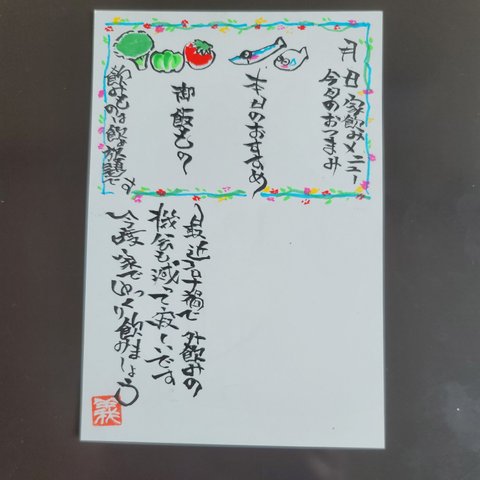 月 日 家飲みメニュー
今夕のおつまみ
本日のおすすめ
御飯もの
飲みものは飲み放題です
最近コロナ禍で外飲みの
機会も減って寂しいです
今度家でゆっくり飲みましょう
義